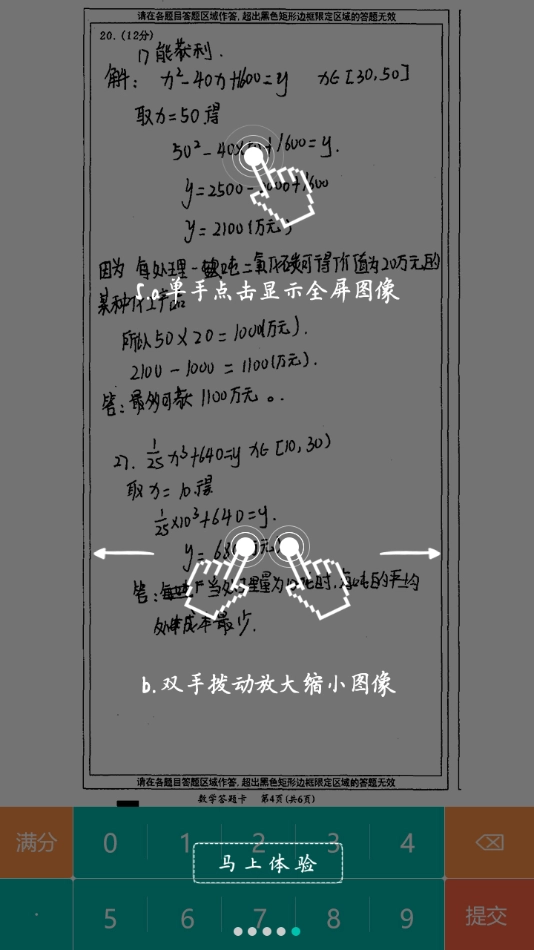 请在各题目答题区域作答,超出黑色矩形边框限定区域的答题无效
20. (12分)
1) 能获利.
解: x²-40x+1600=y x∈[30,50]
取x=50得
50²-40×50+1600=y.
y=2500-2000+1600
y=2100(万元)
因为 每处理一吨二氧化碳可得价值为20万元的
5.a.单手点击显示全屏图像
某种化工产品
所以50×20=1000(万元).
2100-1000=1100(万元).
答:最多可获1100万元。.
27. 1/25 x³+640=y x∈[10,30)
取x=10.得
1/25×10³+640=y.
y=68
答: 当处理量为 时,每吨的平均
成本最少.
b.双手拨动放大缩小图像
请在各题目答题区域作答,超出黑色矩形边框限定区域的答题无效
数学答题卡 第4页(共6页)
满分 0 1 2 3 4
马上体验
· 5 6 7 8 9 提交